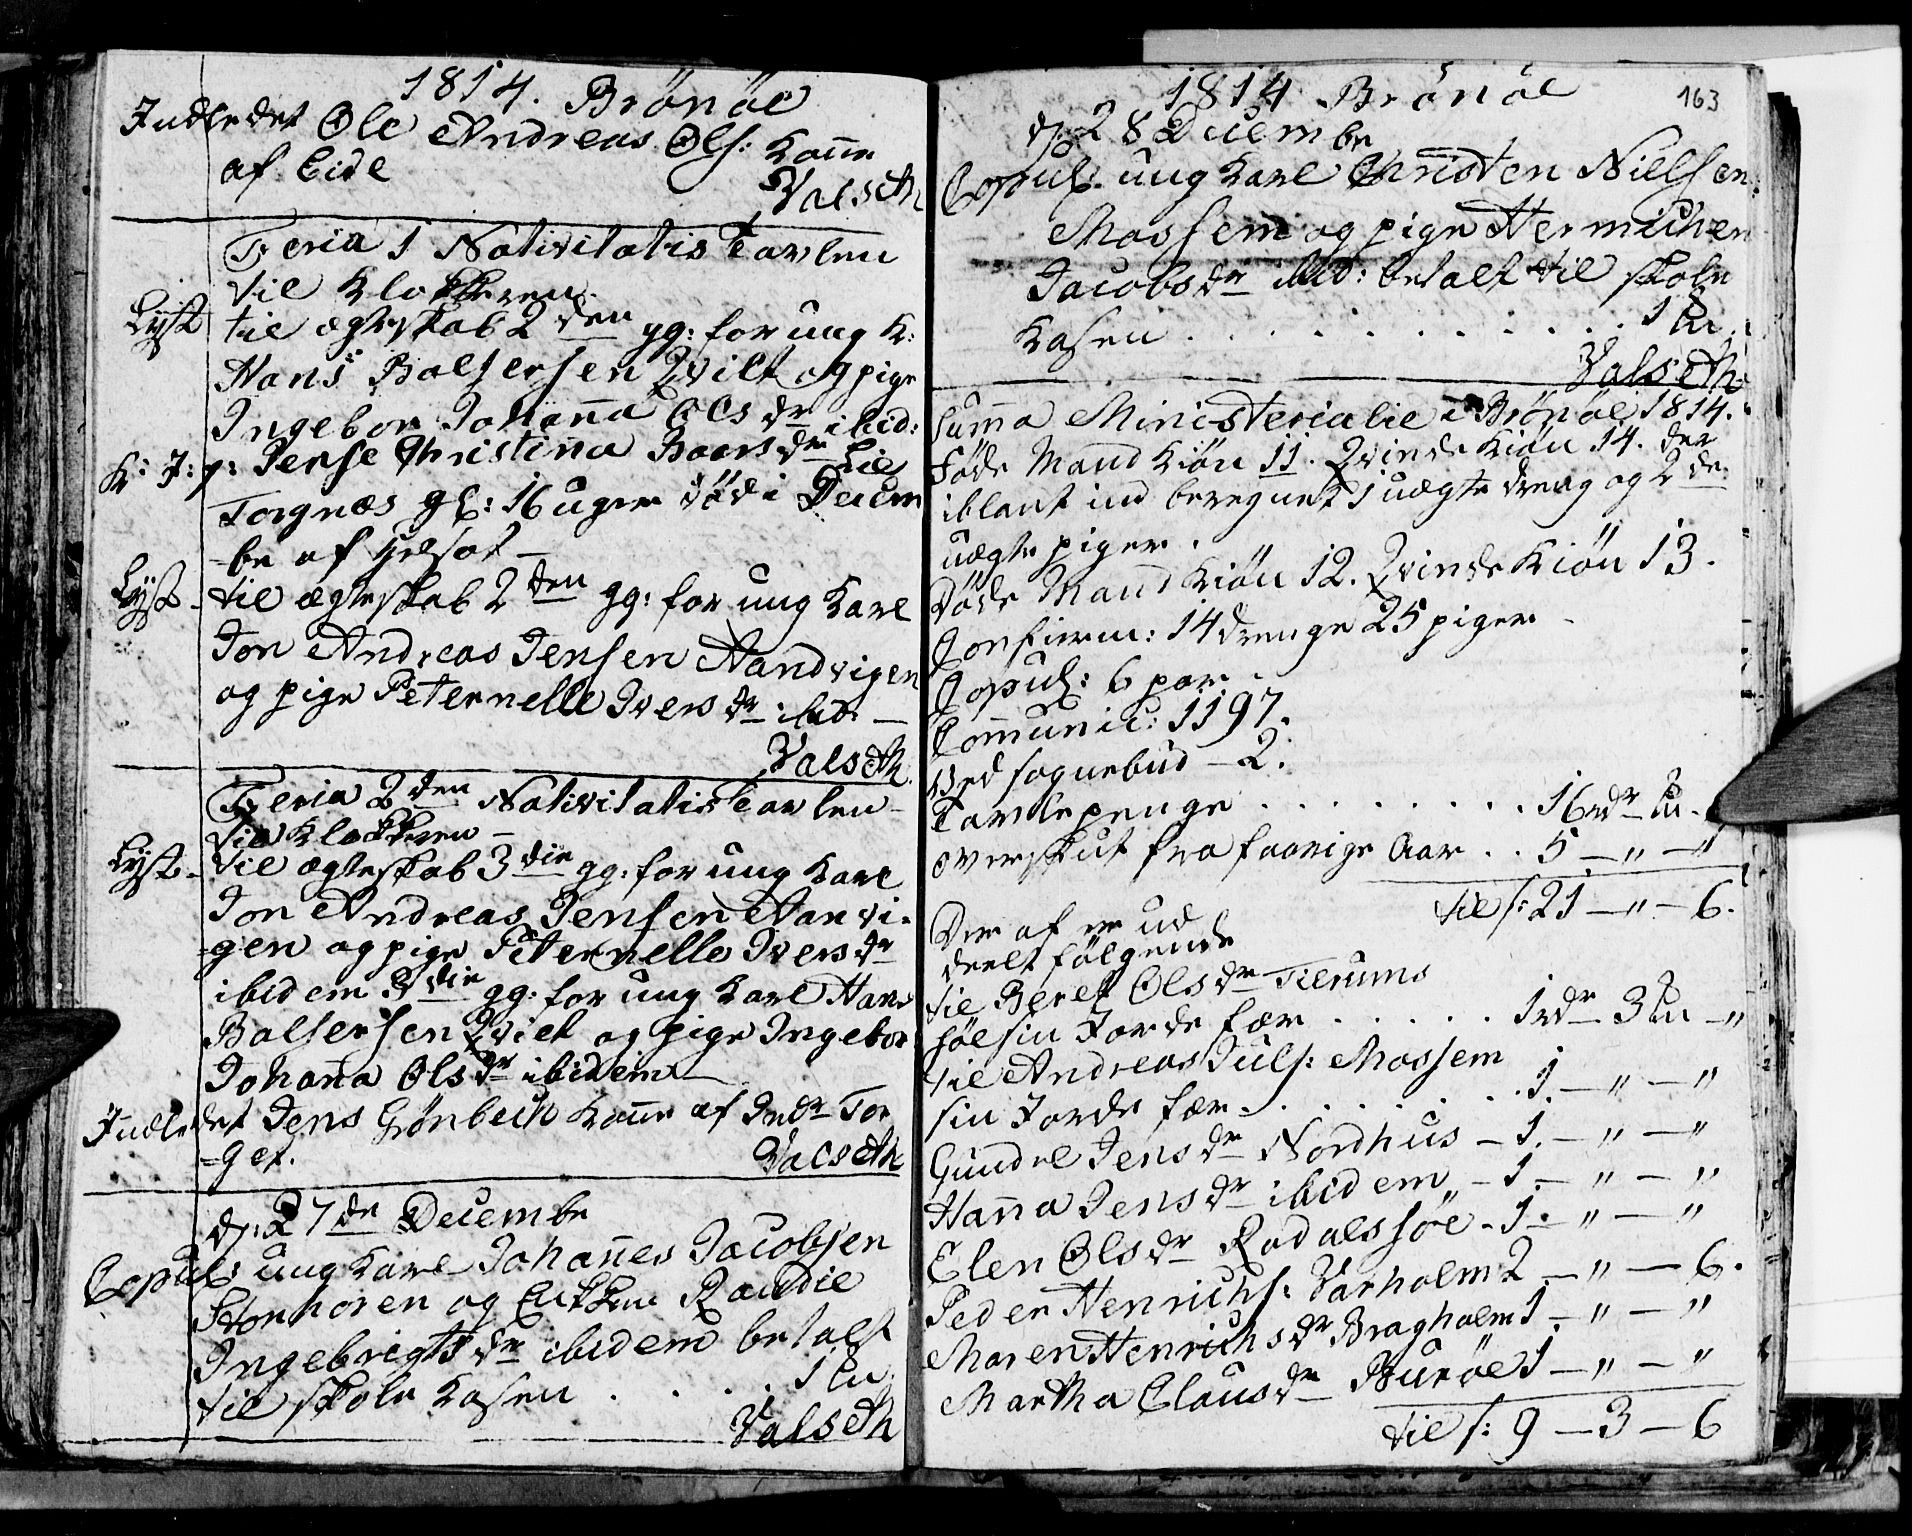 1814. Brönöe
Indledet Ole Andreas Ols: Kone
af Eide
Valseth
Feria 1 Nativitatis Tavlen
til Klokkeren.
Lyst til ægteskab 2den gg: for ung K:
Hans Baltsersen Qvilt og pige
Ingebor Johanna Olsdr ibid:
K: J: p: Jense Christina Baarsdr
Torgnæs gl: 16 uger död i Decem
=be af
Lyst- til ægteskab 2den gg: for ung Karl
Jon Andreas Jensen Aandvigen
og pige Peternelle Iversdr ibid: -
Valseth
Feria 2den Nativitatis Tavlen -
til Klokkeren -
Lyst- til ægteskab 3die gg: for ung Karl
Jon Andreas Jensen Aanvi=
=gen og pige Peternelle Iversdr
ibidem 3die gg: for ung Karl Hans
Baltsersen Qvilt og pige Ingebor
Johanna Olsdr ibidem -
Indledet Jens Grönbech Kone af Indr Tor
=get.
Valseth
d: 27de Decembr
Copul: ung Karl Johannes Jacobsen
Storhoren og Enkken Randie
Ingebrigtsdr ibidem betalt
til skole Kasen . . . . 1
Valseth
1814 Brönöe
163
d: 28 Decembr
Copul: ung Karl Christen Nielsen
Mossem og pige Hermichen
Jacobsdr ibid: betalt til skole
Kasen . . . . . . . . . . 1
Valseth
Summa Ministerialie i Brönöe 1814.
Föde Mand Kiön 11. Qvinde Kiön 14. der
iblant ind beregnet 1 uægte dreng og 2de
uægte piger.
Döde Mand Kiön 12. Qvinde Kiön 13.
Confierm: 14 drenge 25 piger
Copul: 6 par
Communic: 1197.
Ved sognebud - 2.
Tavlepenge . . . . . . . . . 16 rdr
overskut fra faarige Aar . . 5 - " - "
til s: 21 - " - 6.
Der af er ud
deelt fölgende
til Beret Olsdr Tilrums
söe sin Jorde fær . . . . . 1 rdr 3 - "
til Andreas Juls: Mossem
sin Jorde fær . . . . . . . . 1. - " - "
Gundel Jensdr Nordhus - 1. - " - "
Hanna Jensdr ibidem - 1. - " - "
Elen Olsdr Rodalssöe - 1. - " - "
Peder Henrichs: Varholm 2 - " - 6.
Maren Henrichsdr Bragholm 1. - " - "
Martha Clausdr Buröe 1 - " - "
til s: 9 - 3 - 6